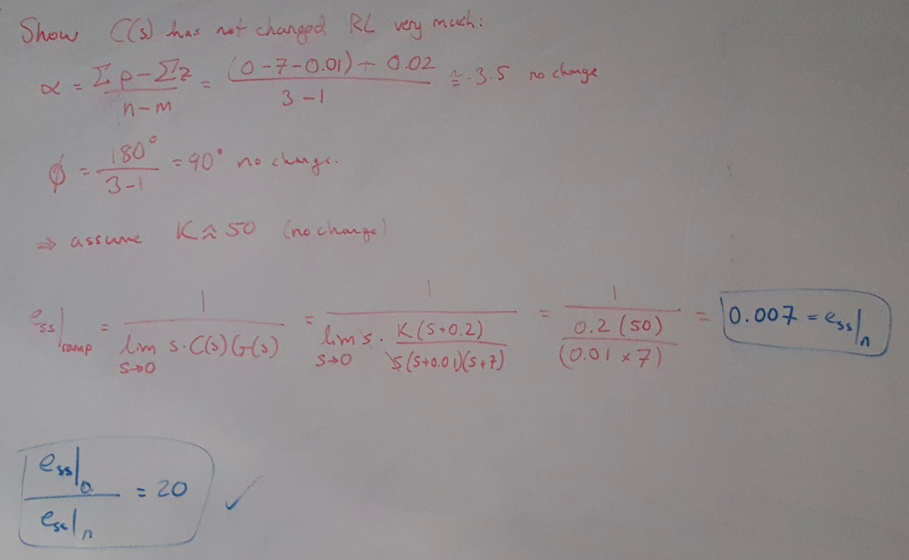 Show C(s) has not changed RL very much:
α = Σp - Σz / n-m = (0-7-0.01) + 0.02 / 3-1 ≅ -3.5 no change
ϕ = 180° / 3-1 = 90° no change.
⇒ assume K ≈ 50 (no change)
e_ss|_ramp = 1 / lim_{s→0} s·C(s)G(s) = 1 / lim_{s→0} s· K(s+0.2) / s(s+0.01)(s+7) = 1 / (0.2(50) / (0.01 x 7)) = 0.007 = e_ss|_n
e_ss|_o / e_ss|_n = 20 ✓